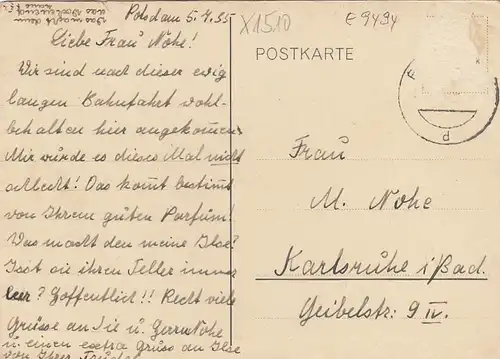 Potsdam 5.4.35
X1510
E9494
Liebe Frau Nohe!
Wir sind nach dieser ewig
langen Bahnfahrt wohl-
behalten hier angekommen.
Mir würde es dieses Mal nicht
schlecht! Das komt bestimt
von Ihrem guten Parfüm!
Was macht den meine Ilse?
Isst sie ihren Teller immer
leer? Hoffentlich!! Recht viele
Grüsse an Sie u. Herrn Nohe
u. einen extra Gruss an Ilse
von Ihrer
POSTKARTE
Frau
M. Nohe
Karlsruhe i/Bad.
Geibelstr: 9 IV.